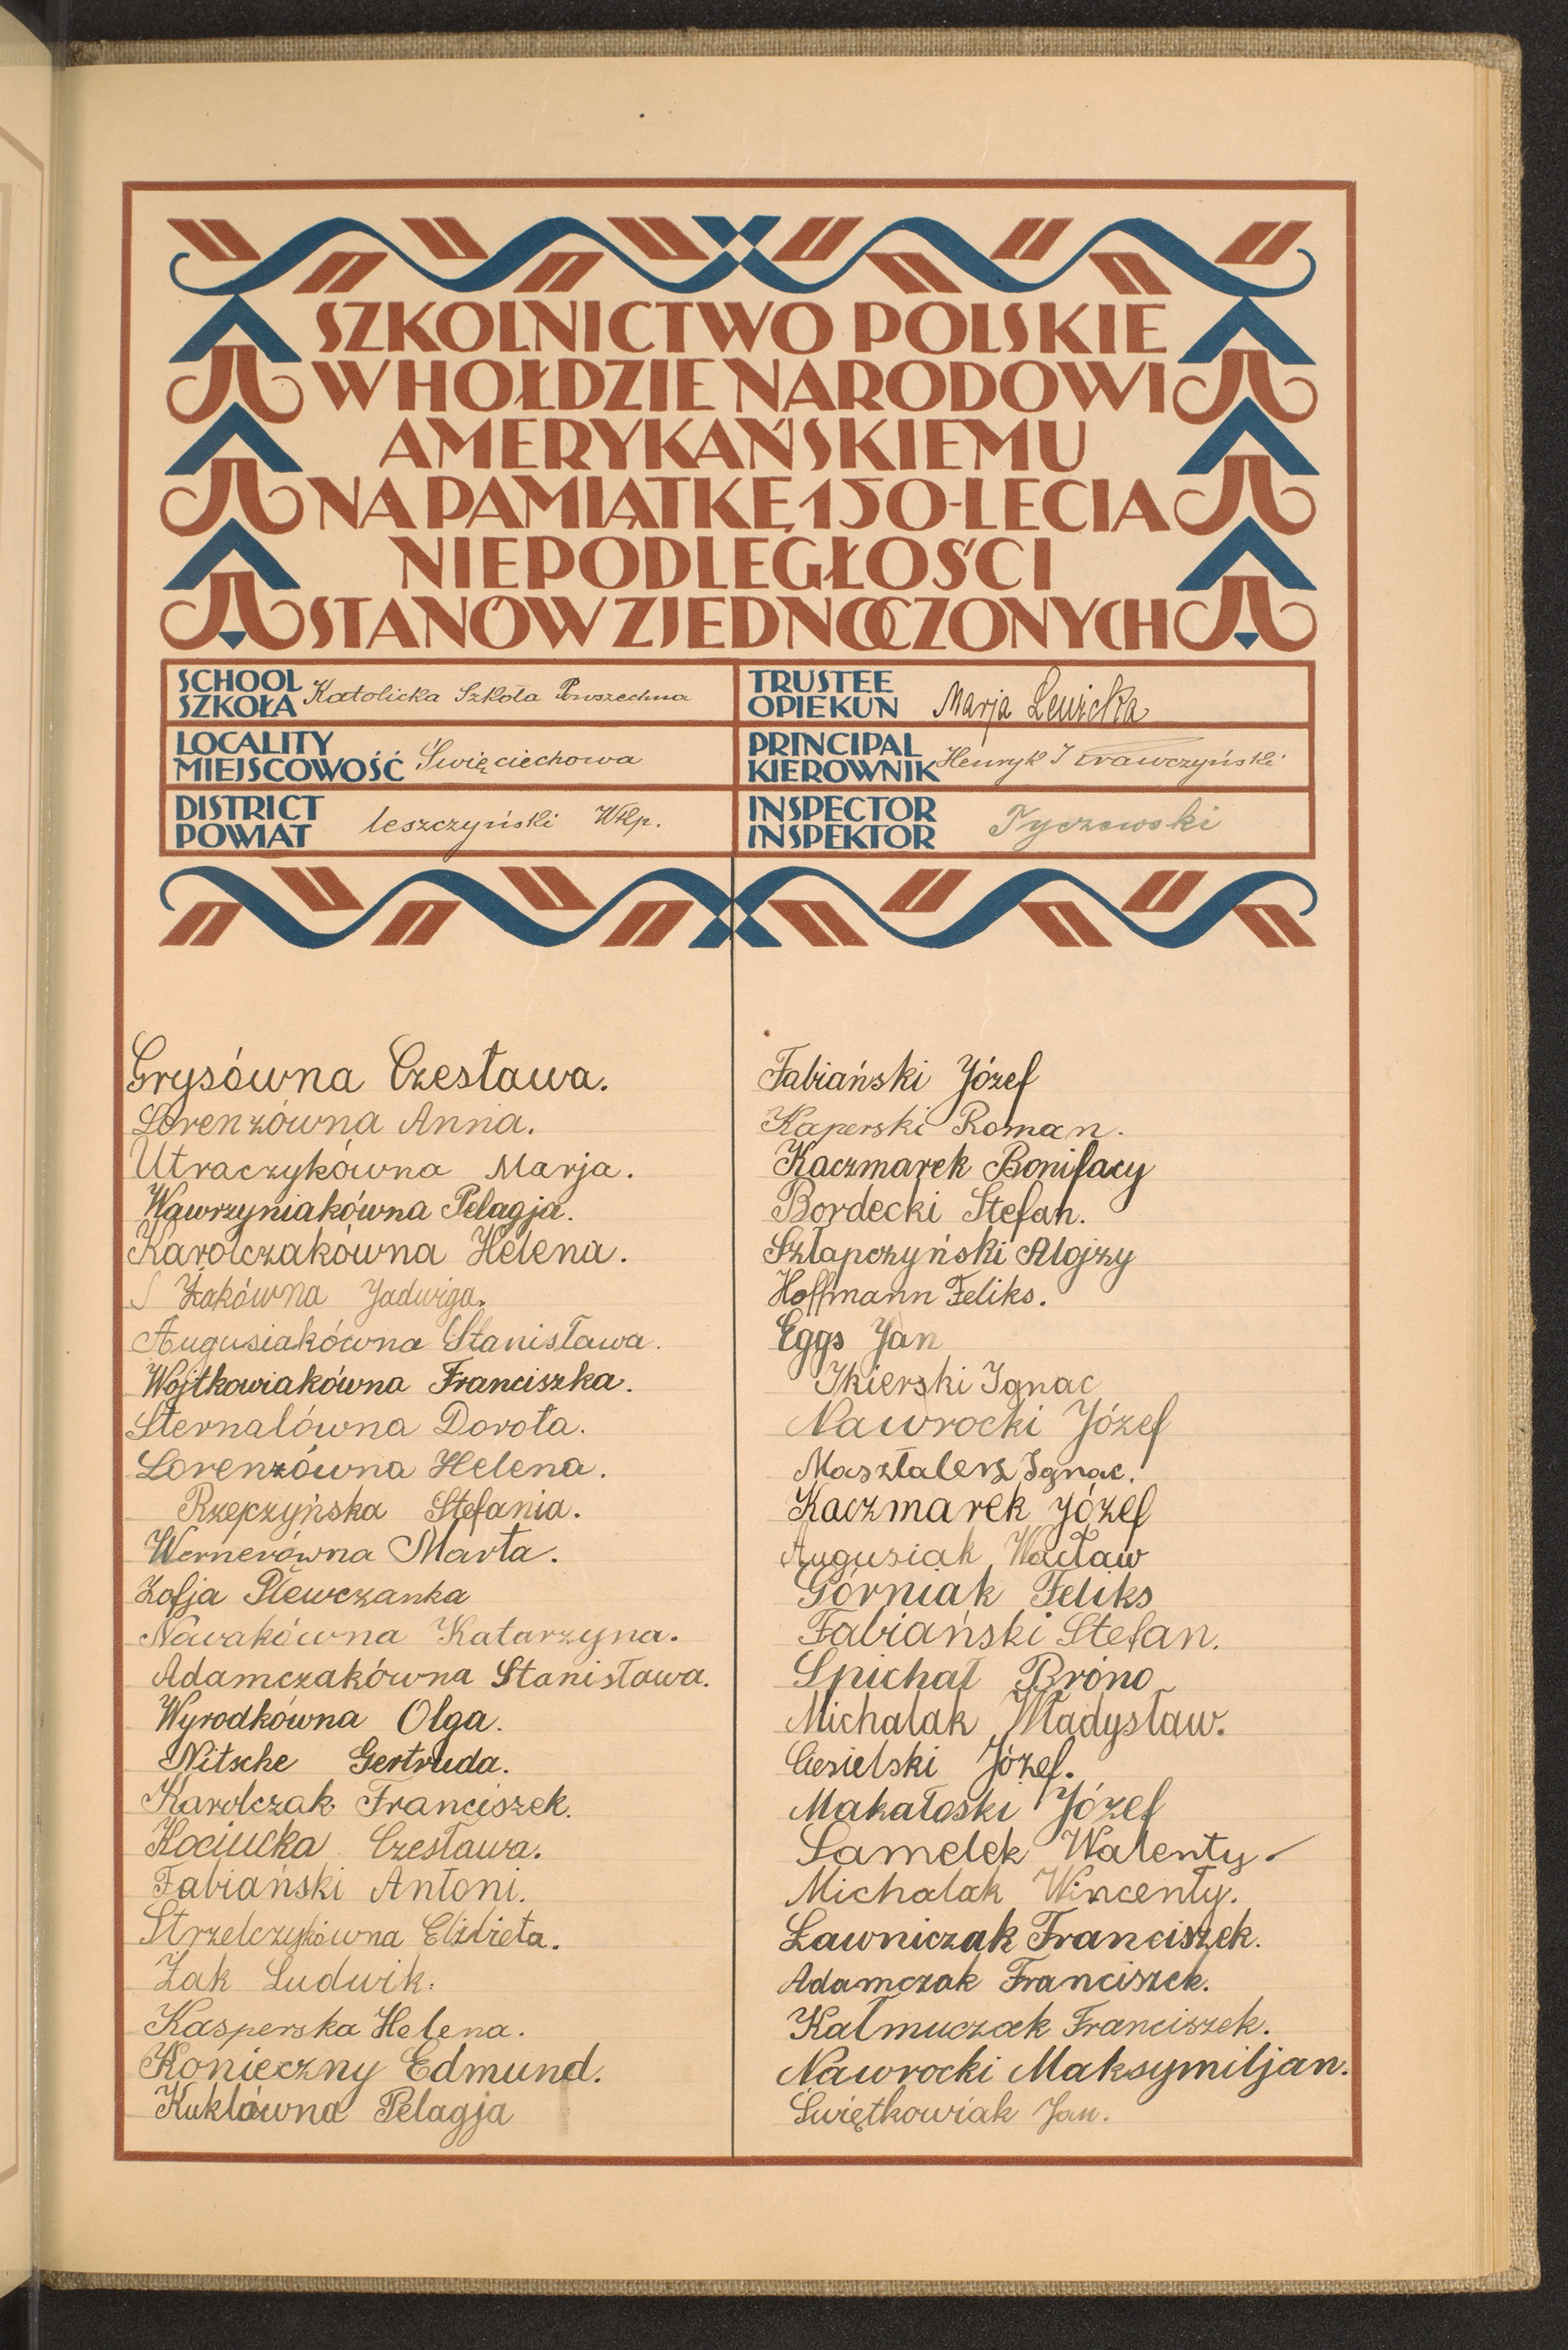 SZKOLNICTWO POLSKIE
W HOŁDZIE NARODOWI
AMERYKAŃSKIEMU
NA PAMIĄTKĘ 150-LECIA
NIEPODLEGŁOŚCI
STANÓW ZJEDNOCZONYCH
SCHOOL
SZKOŁA Katolicka Szkoła Powszechna
TRUSTEE
OPIEKUN Marja
LOCALITY
MIEJSCOWOŚĆ Święciechowa
PRINCIPAL
KIEROWNIK Henryk Trawczyński
DISTRICT
POWIAT leszczyński Wlkp.
INSPECTOR
INSPEKTOR Tyczewski
Grysówna Czesława.
Lorenzówna Anna.
Utraczykówna Marja.
Wawrzyniakówna Pelagja.
Karolczakówna Helena.
Żakówna Jadwiga.
Augusiakówna Stanisława.
Wojtkowiakówna Franciszka.
Sternalówna Dorota.
Lorenzówna Helena.
Rzepczyńska Stefania.
Wernerówna Marta.
Zofja Plewczanka
Nowakówna Katarzyna.
Adamczakówna Stanisława.
Wyrodkówna Olga.
Nitsche Gertruda.
Karolczak Franciszek.
Kociucka Czesława.
Fabiański Antoni.
Strzelczykówna Elżbieta.
Żak Ludwik.
Kasperska Helena.
Konieczny Edmund.
Kuklówna Pelagja
Fabiański Józef
Kaperski Roman.
Kaczmarek Bonifacy
Bordecki Stefan.
Szłapczyński Alojzy
Hoffmann Feliks.
Eggs Jan
Ikierski Ignac
Nawrocki Józef
Masztalerz Ignac.
Kaczmarek Józef
Augusiak Wacław
Górniak Feliks
Fabiański Stefan.
Spichał Bróno
Michalak Władysław.
Ciesielski Józef.
Makałoski Józef
Samelek Walenty.
Michalak Wincenty.
Ławniczak Franciszek.
Adamczak Franciszek.
Kałmuczak Franciszek.
Nawrocki Maksymiljan.
Świętkowiak Jan.